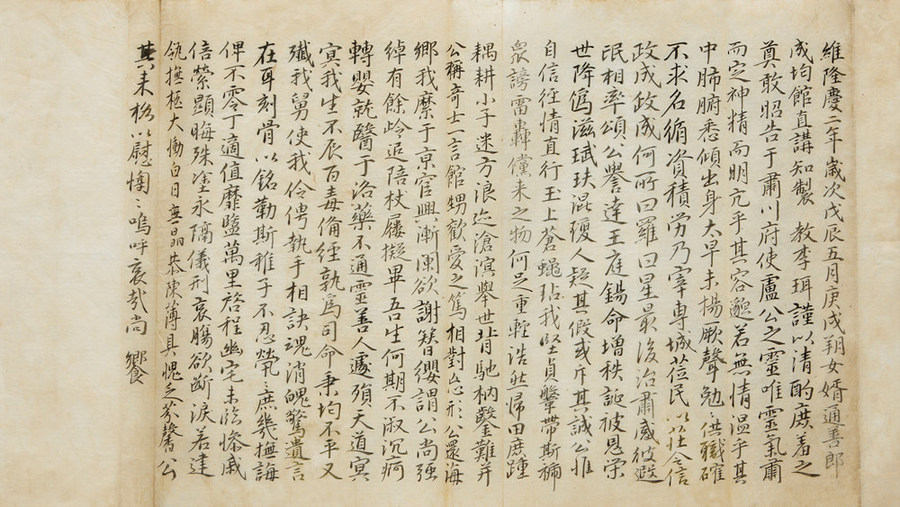 維隆慶二年歲次戊辰五月庚戌朔女婿通善郎
成均館直講知製 教李珥謹以清酌庶羞之
奠敢昭告于肅川府使盧公之靈唯靈氣肅
而定神精而明亢乎其容邈若無情溫乎其
中肺腑悉傾出身太早未揚厥聲勉〻供職確
不求名循資積勞乃宰專城莅民以壯令信
政成政成何所曰羅曰星最後治肅威彼遐
氓相率頌公譽達王庭錫命增秩誕被恩榮
世降僞滋珷玞混瓊人疑其假或斥其誠公惟
自信徑情直行玉上蒼蠅玷我堅貞鞶帶斯褫
衆謗雷轟儻來之物何足重輕浩然歸田庶踵
耦耕小子迷方浪迹滄溟擧世背馳枘鑿難并
公稱奇士一言館甥歡愛之篤相對忘形公還海
鄉我縻于京宦興漸闌欲謝簪纓謂公尚強
綽有餘岭退陪杖屨擬畢吾生何期不淑沉痾
轉嬰就醫于洛藥不通靈善人遽殞天道冥
冥我生不辰百毒備經孰爲司命秉均不平又
殲我舅使我伶俜執手相訣魂消魄驚遺言
在耳刻骨以銘勤斯稚子不忍煢〻庶幾撫誨
俾不零丁適值靡盬萬里啓程幽宅未臨慘慼
倍縈顯晦殊塗永隔儀刑哀腸欲斷淚若建
瓴撫柩大慟白日無晶恭陳薄具愧乏芬馨公
其來格以慰〻嗚呼哀哉尚 饗